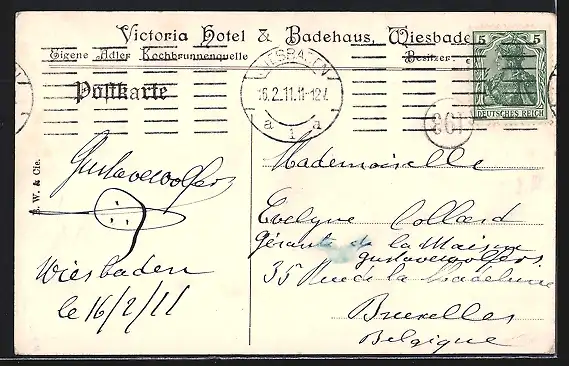 Victoria Hotel & Badehaus, Wiesbade
Eigene Adler Kochbrunnenquelle
Besitzer:
Postkarte
WIESBADEN
16.2.11.11-12V.
5 5
DEUTSCHES REICH
Gustavewolfers
Wiesbaden
le 16/2/11
W. & Cie.
Mademoiselle
Evelyne Collard
Gérante de la Maison
gustavewolfers
35 Rue de la Madeleine
Bruxelles
Belgique